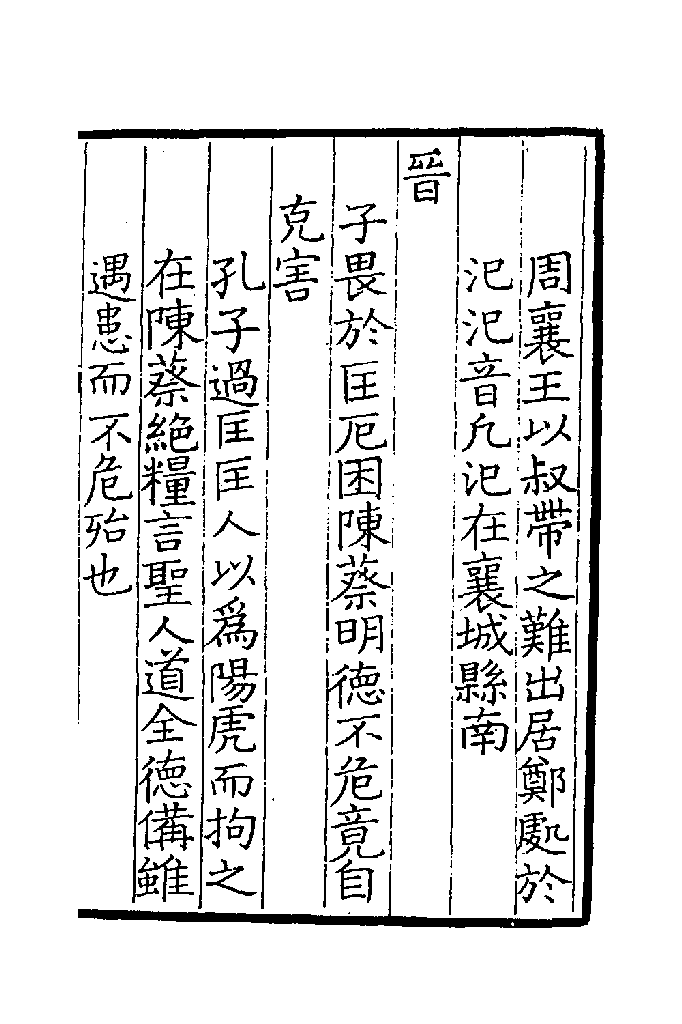 周襄王以叔帶之難出居鄭處於
氾氾音凡氾在襄城縣南
晉
子畏於匡厄困陳蔡明德不危竟自
克害
孔子過匡匡人以爲陽虎而拘之
在陳蔡絕糧言聖人道全德備雖
遇患而不危殆也